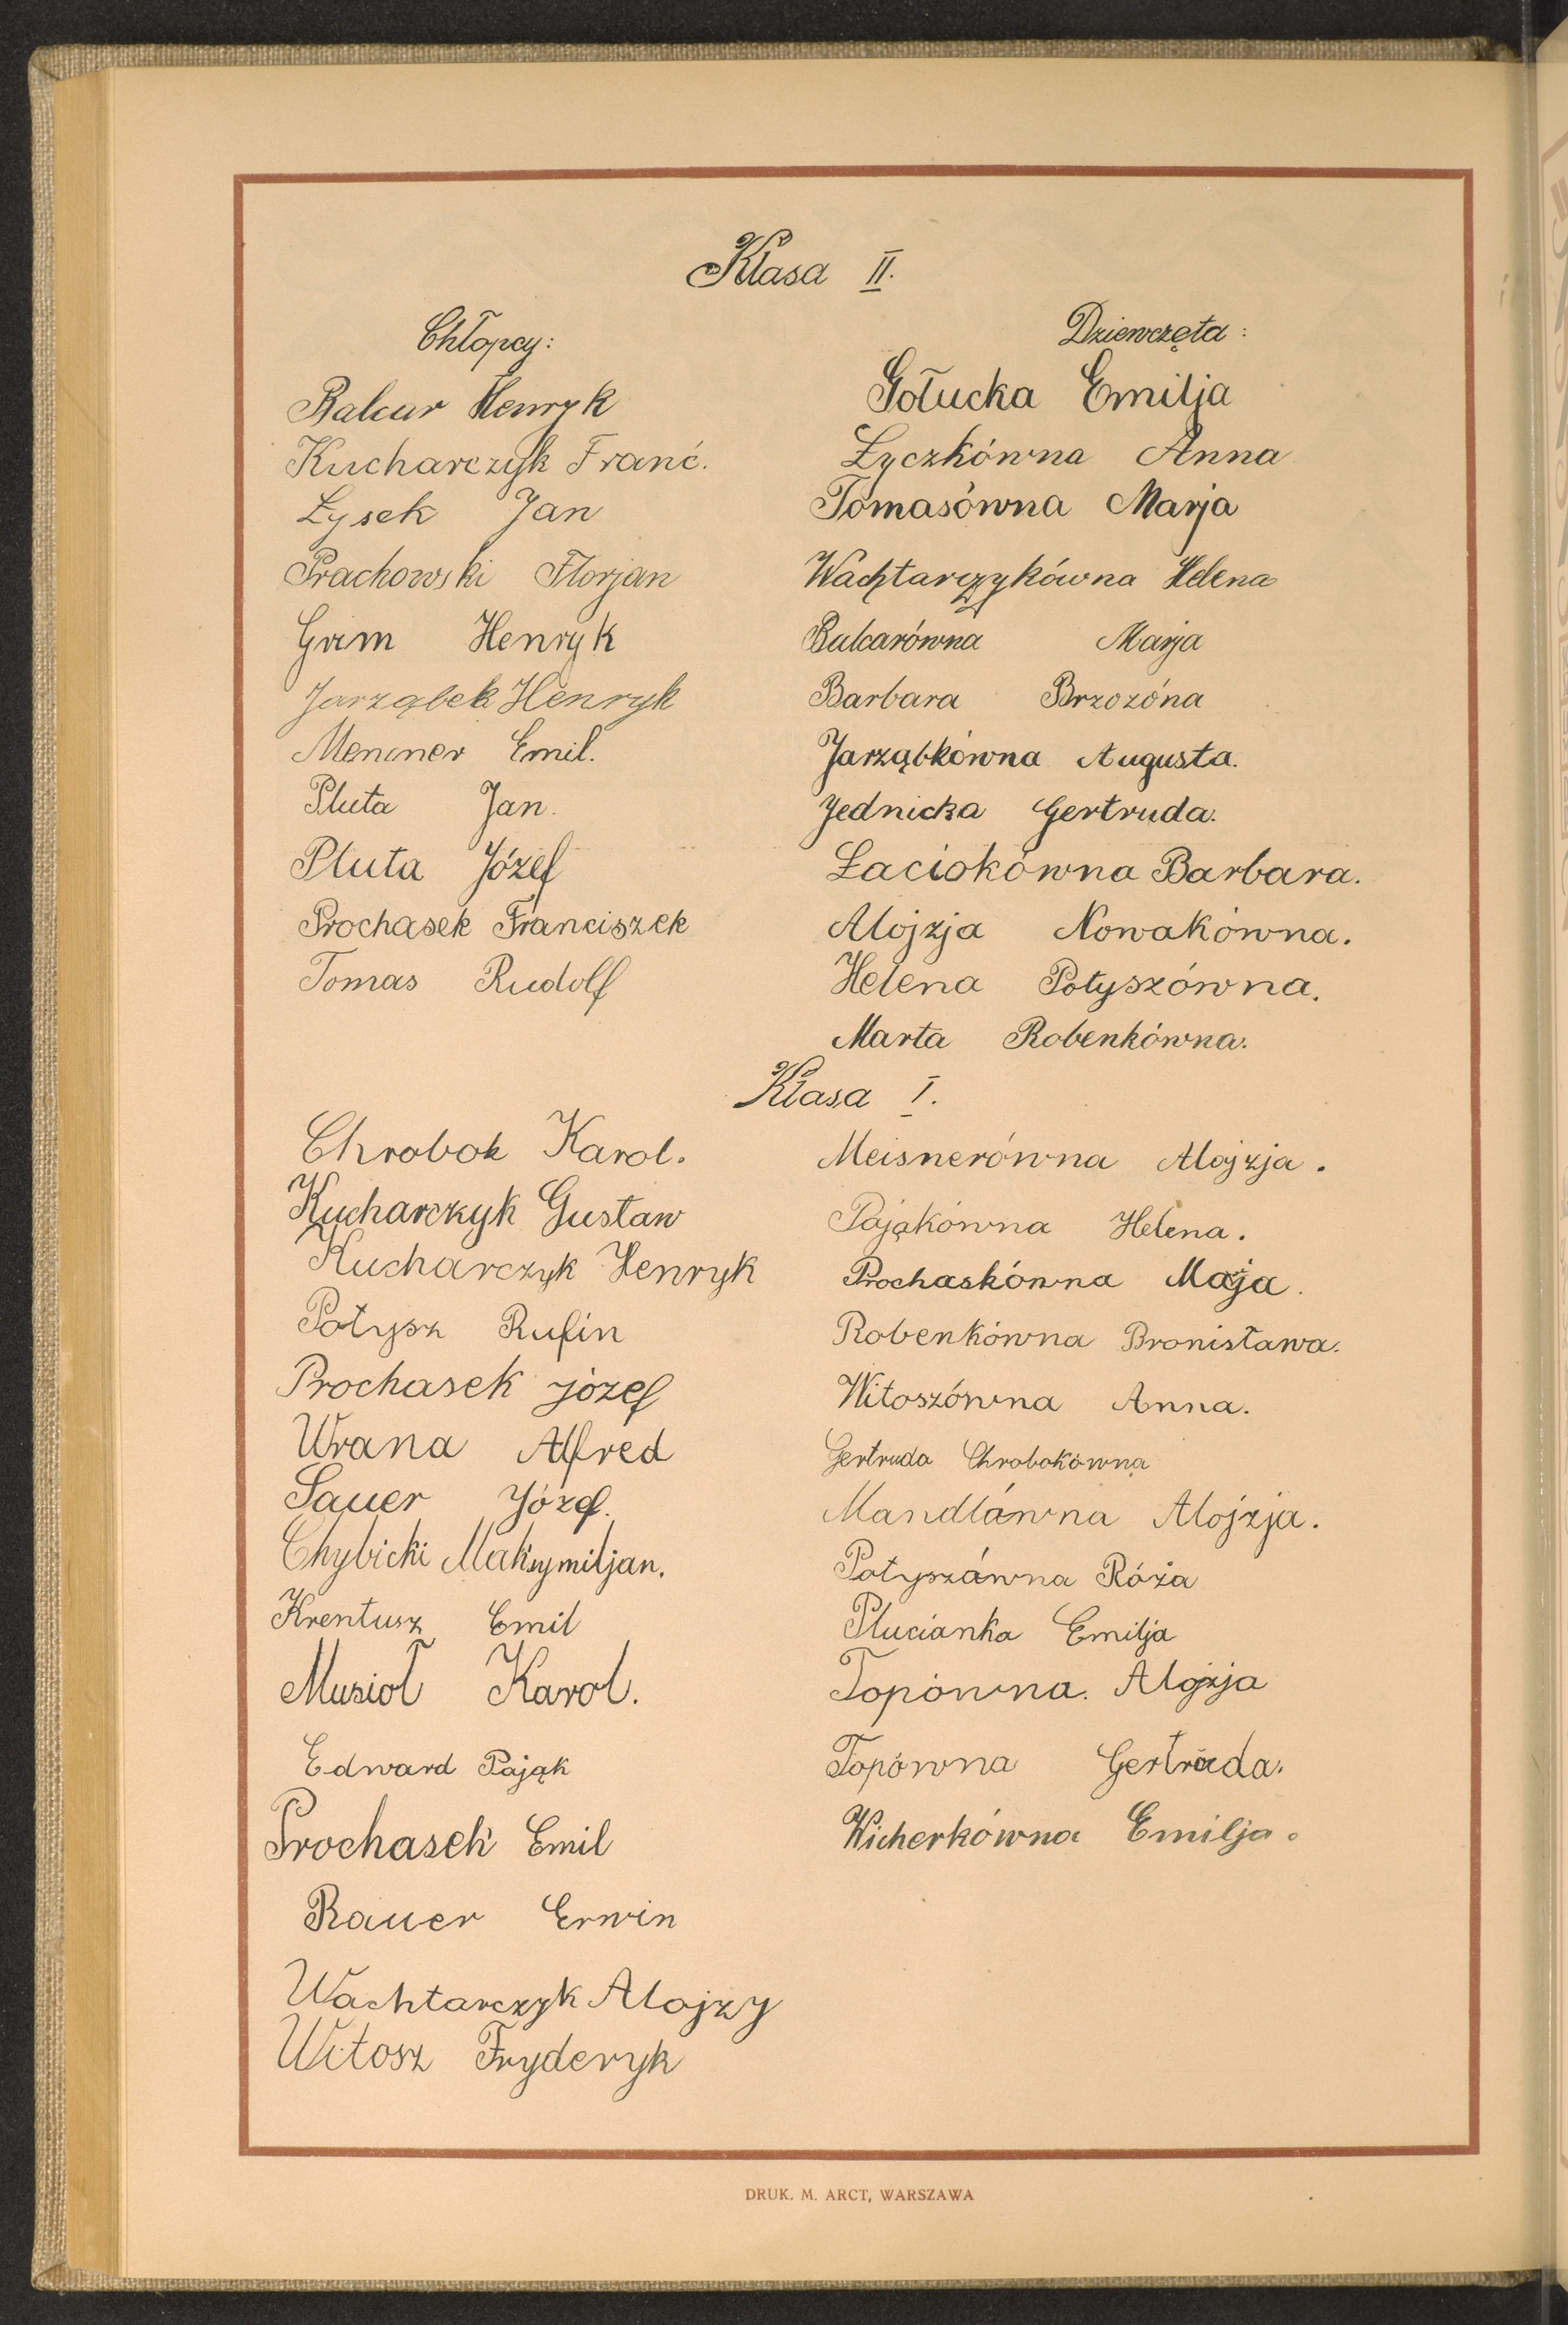 Klasa II.
Chłopcy:
Balcar Henryk
Kucharczyk Franć.
Łysek Jan
Prachowski Florjan
Grim Henryk
Jarząbek Henryk
Mencner Emil.
Pluta Jan.
Pluta Józef
Prochasek Franciszek
Tomas Rudolf
Dziewczęta:
Gołucka Emilja
Łyczkówna Anna
Tomasówna Marja
Wachtarczykówna Helena
Balcarówna Marja
Barbara Brzozóna
Jarząbkówna Augusta.
Jednicka Gertruda.
Łaciokówna Barbara.
Alojzja Nowakówna.
Helena Potyszówna.
Marta Robenkówna.
Klasa I.
Chrobok Karol.
Kucharczyk Gustaw
Kucharczyk Henryk
Potysz Rufin
Prochasek Józef
Wrana Alfred
Sauer Józef.
Chybicki Maksymiljan.
Krentusz Emil
Musioł Karol.
Edward Pająk
Prochasek Emil
Rauer Erwin
Wachtarczyk Alojzy
Witosz Fryderyk
Meisnerówna Alojzja.
Pająkówna Helena.
Prochaskówna Maja.
Robenkówna Bronisława.
Witoszówna Anna.
Gertruda Chrobokówna
Mandlówna Alojzja.
Potyszówna Róża
Plucianka Emilja
Topówna. Alojzja
Topówna Gertruda.
Wicherkówna Emilja.
DRUK. M. ARCT, WARSZAWA